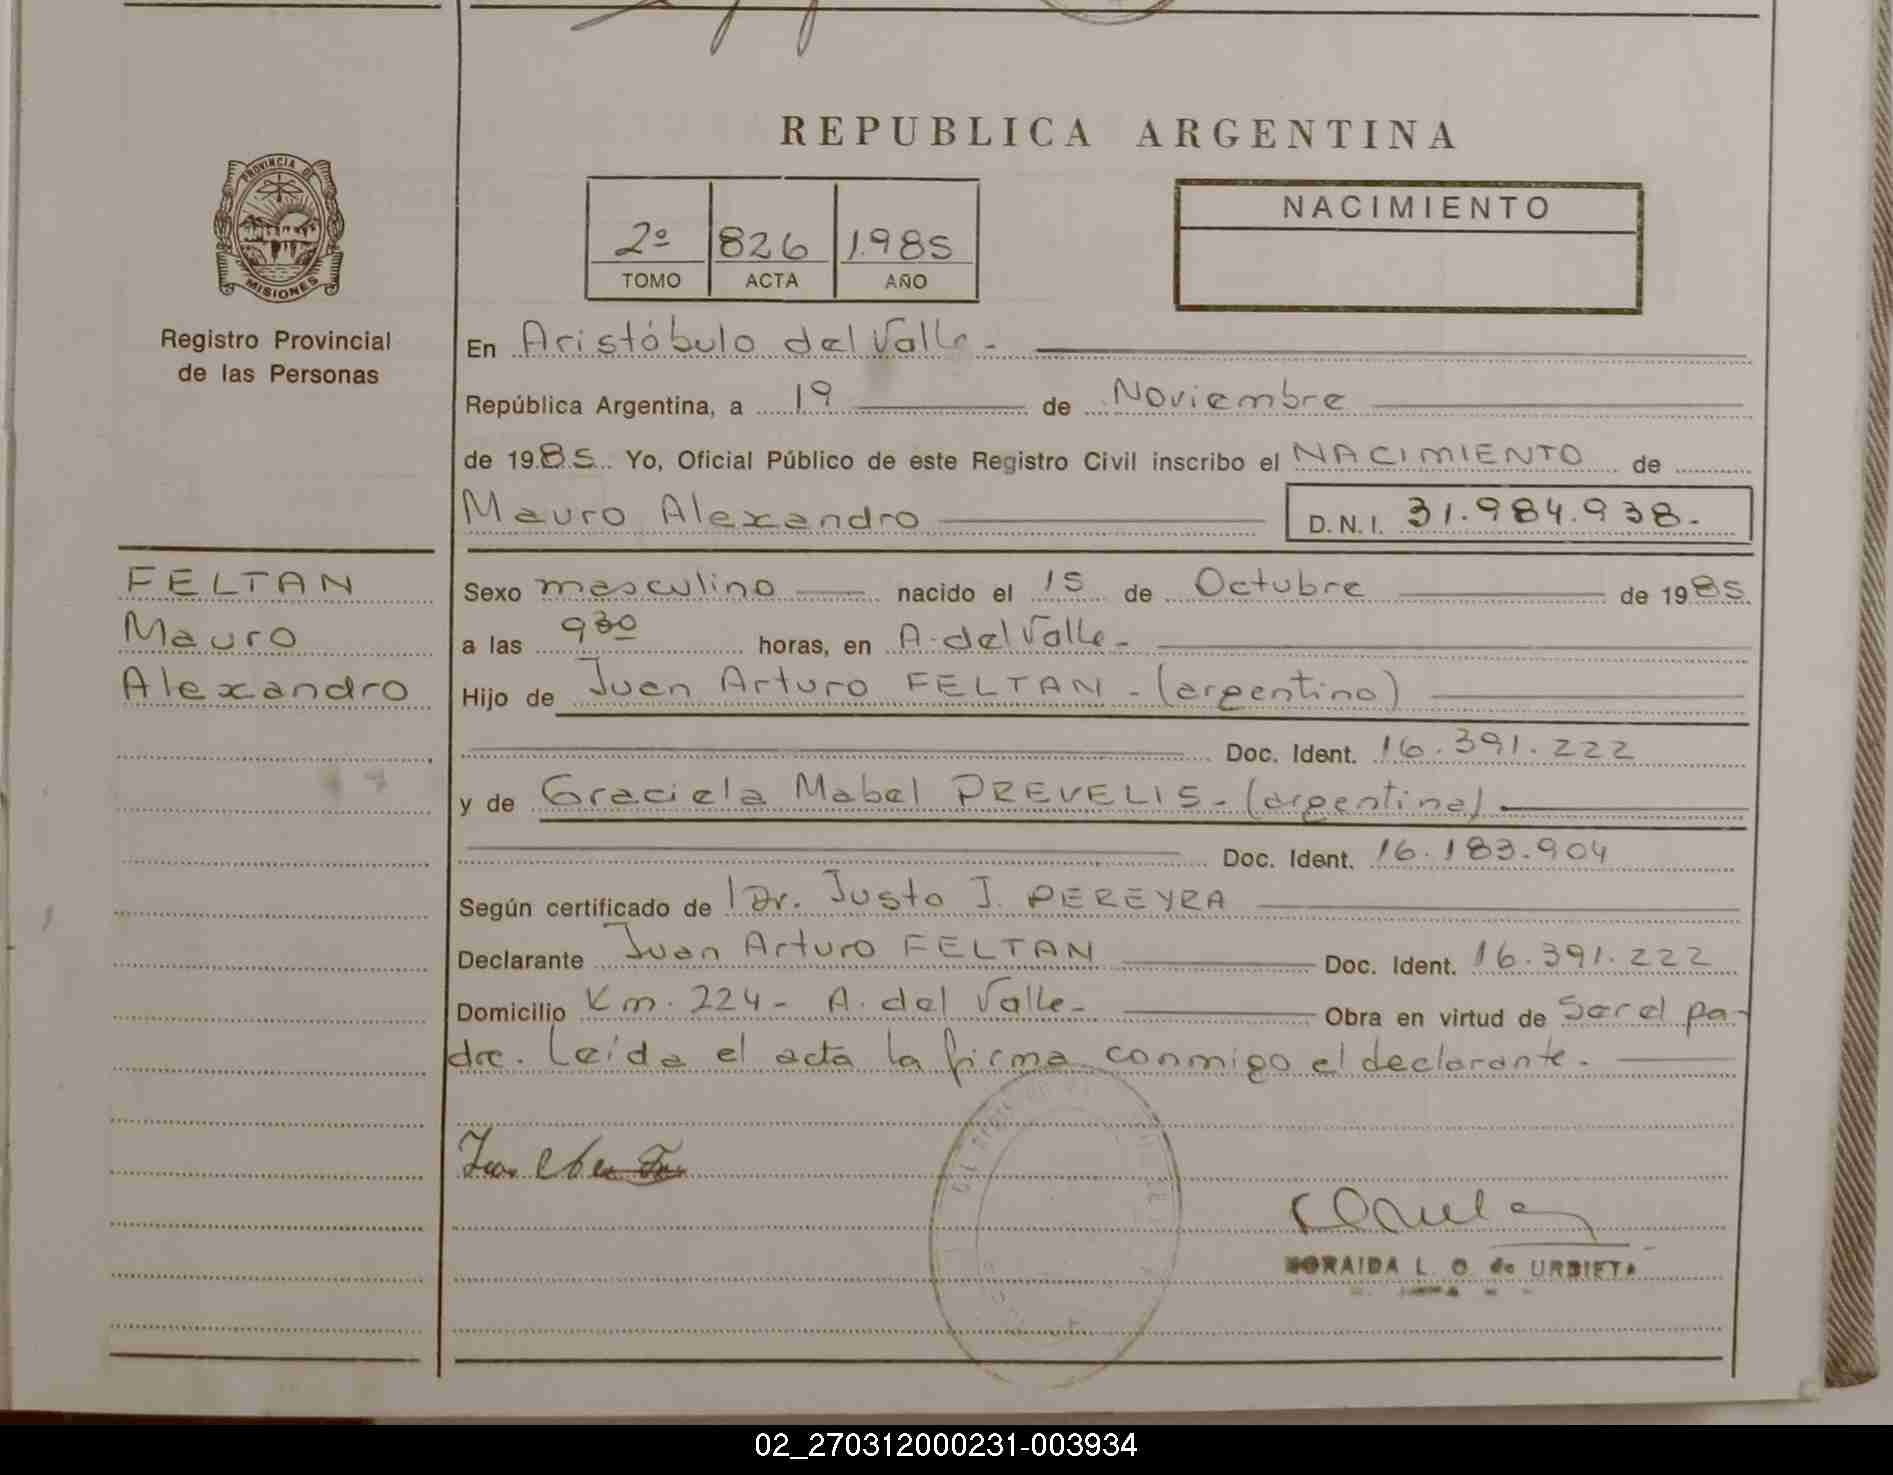 REPUBLICA ARGENTINA
PROVINCIA DE
MISIONES
Registro Provincial
de las Personas
2º 826 1.985
TOMO ACTA AÑO
NACIMIENTO
En Aristóbulo del Valle-
República Argentina, a 19 de Noviembre
de 1985. Yo, Oficial Público de este Registro Civil inscribo el NACIMIENTO de
Mauro Alexandro D.N.I. 31.984.938.-
FELTAN
Mauro
Alexandro
Sexo masculino nacido el 15 de Octubre de 1985
a las 930 horas, en A. del Valle-
Hijo de Juan Arturo FELTAN - (argentino)
Doc. Ident. 16.391.222
y de Graciela Mabel PREVELIS - (argentina)
Doc. Ident. 16.183.904
Según certificado de Dr. Justo J. PEREYRA
Declarante Juan Arturo FELTAN Doc. Ident. 16.391.222
Domicilio Km. 224 - A. del Valle- Obra en virtud de Ser el pa-
dre. Leída el acta la firma conmigo el declarante.
L. O. de URBIETA
02_270312000231-003934